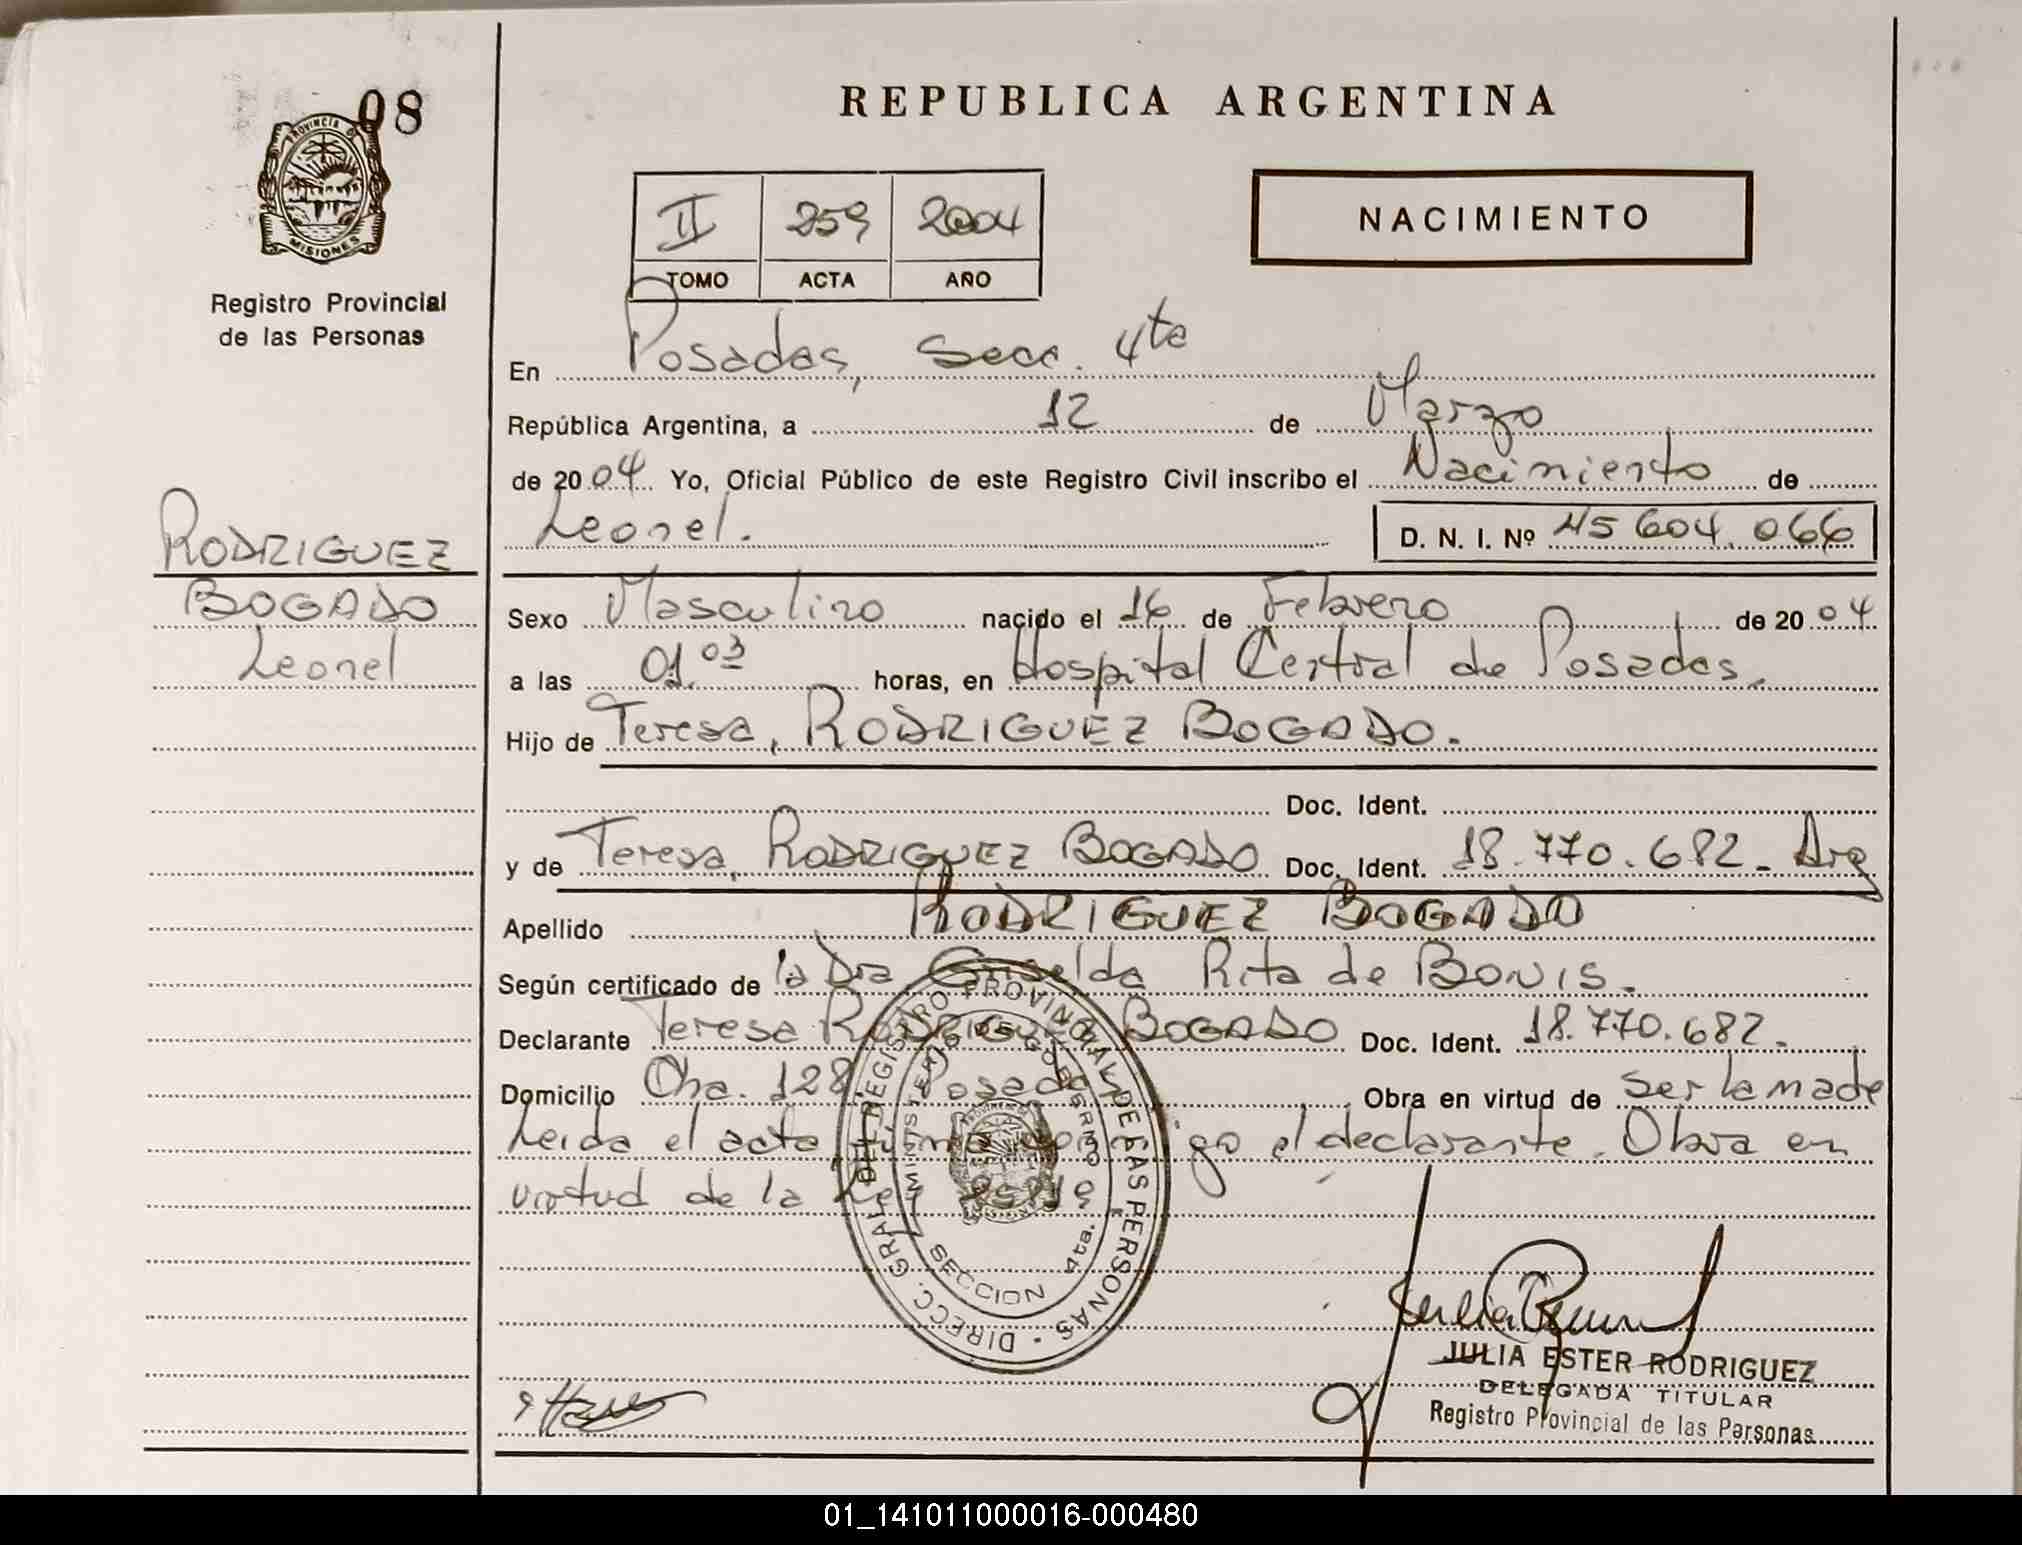 08
PROVINCIA DE
MISIONES
Registro Provincial
de las Personas
RODRIGUEZ
BOGADO
Leonel
REPUBLICA ARGENTINA
II 259 2004
TOMO ACTA AÑO
NACIMIENTO
En Posadas, Secc. 4ta
República Argentina, a 12 de Marzo
de 2004 Yo, Oficial Público de este Registro Civil inscribo el Nacimiento de
Leonel. D. N. I. Nº 45 604. 066
Sexo Masculino nacido el 16 de Febrero de 2004
a las 01.03 horas, en Hospital Central de Posadas.
Hijo de Teresa, RODRIGUEZ BOGADO.
Doc. Ident.
y de Teresa, RODRIGUEZ BOGADO Doc. Ident. 18.770.682_ Arg
Apellido RODRIGUEZ BOGADO
Según certificado de la Dra Griselda Rita de BONIS.
Declarante Teresa RODRIGUEZ BOGADO Doc. Ident. 18.770.682.
Domicilio Cha. 128. Posadas Obra en virtud de ser la madre
Leida el acta firma conmigo el declarante. Obra en
virtud de la Ley
DIRECC. GRAL. DEL REGISTRO PROVINCIAL DE LAS PERSONAS -
MINISTERIO DE GOBIERNO
SECCION 4ta.
JULIA ESTER RODRIGUEZ
DELEGADA TITULAR
Registro Provincial de las Personas
01_141011000016-000480